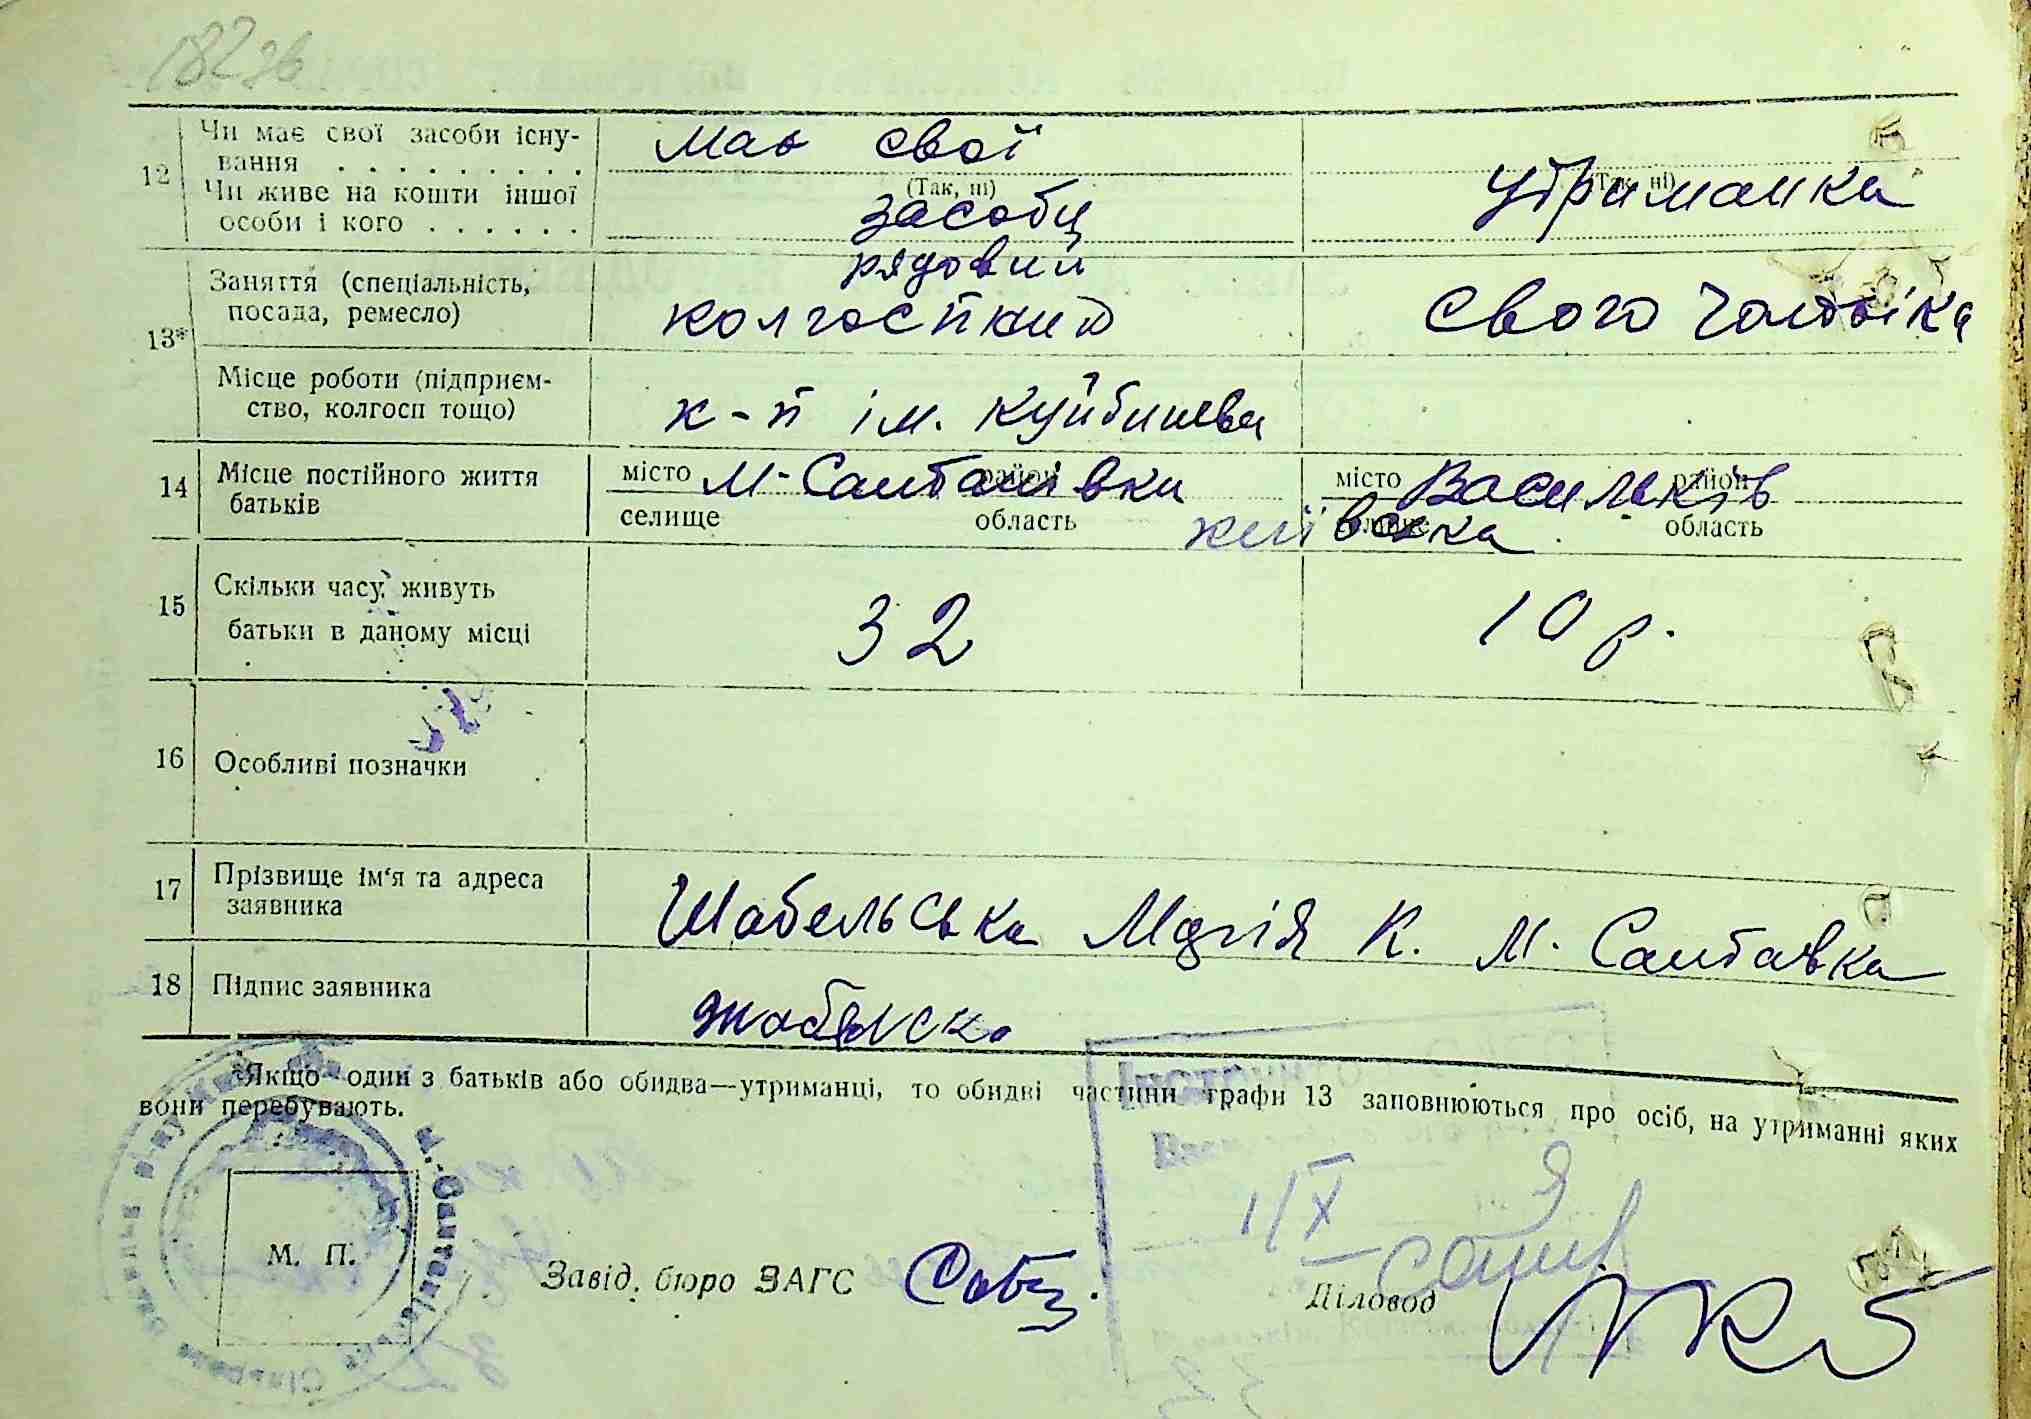 182 зв
12 Чи має свої засоби існу-
вання . . . . . . . . . .
Чи живе на кошти іншої
особи і кого . . . . . .
має свої
(Так, ні)
засоби
(Так, ні)
утриманка
13* Заняття (спеціальність,
посада, ремесло)
рядовий
колгоспний
свого чоловіка
Місце роботи (підприєм-
ство, колгосп тощо)
к-п ім. Куйбишева
14 Місце постійного життя
батьків
місто М-Салтанівка район
селище область
місто Васильків район
селище Київська область
15 Скільки часу живуть
батьки в даному місці
32
10 р.
16 Особливі позначки
17 Прізвище ім'я та адреса
заявника
Шабельська Марія К. М. Салтанівка
18 Підпис заявника
*Якщо один з батьків або обидва—утриманці, то обидві частини графи 13 заповнюються про осіб, на утриманні яких
вони перебувають.
М. П.
Завід. бюро ЗАГС
Діловод
1/X